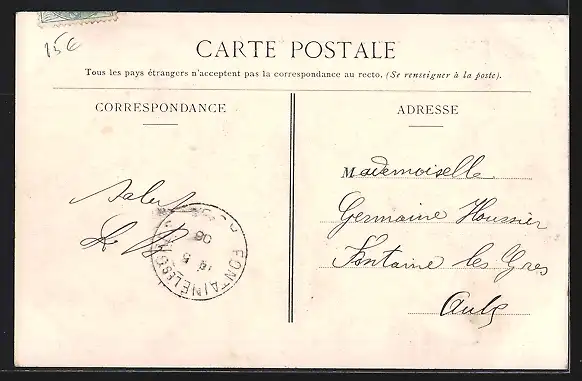 15€
CARTE POSTALE
Tous les pays étrangers n'acceptent pas la correspondance au recto. (Se renseigner à la poste).
CORRESPONDANCE
ADRESSE
Mademoiselle
Germaine Houssier
Fontaine les Gres
Aube
Salut
FONTAINE LES G
5
06